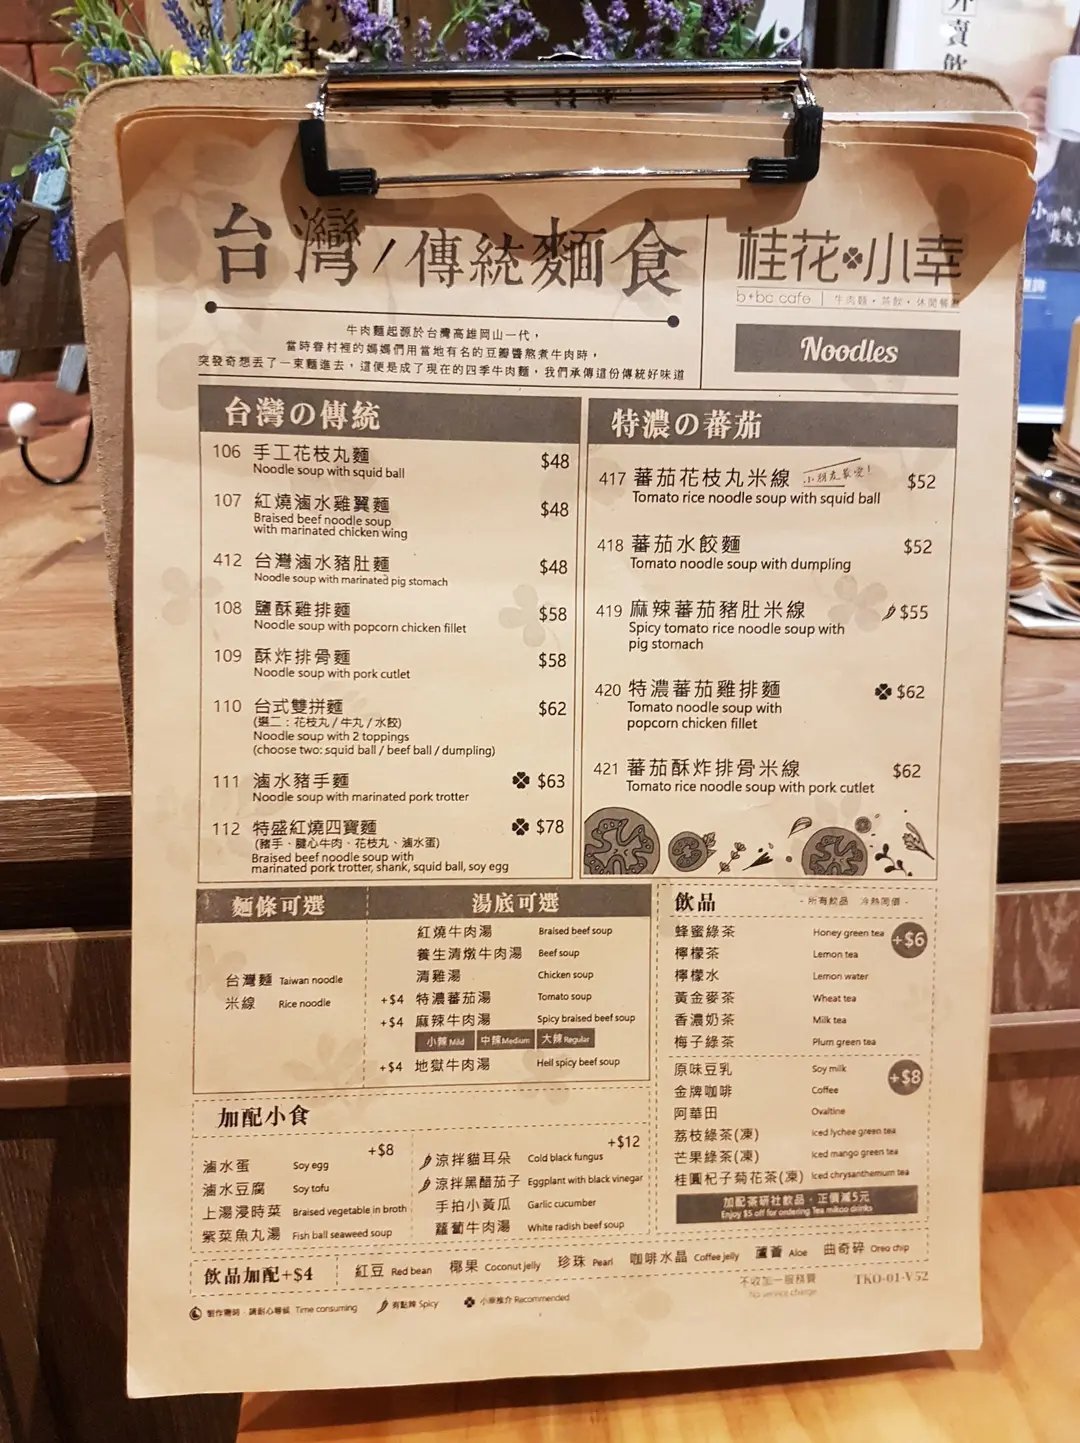 台灣/傳統麵食
桂花小幸
b+bc cafe | 牛肉麵・茶飲・休閒餐
Noodles
牛肉麵起源於台灣高雄岡山一代，
當時眷村裡的媽媽們用當地有名的豆瓣醬熬煮牛肉時，
突發奇想丟了一束麵進去，這便是成了現在的四季牛肉麵，我們承傳這份傳統好味道
台灣の傳統
106 手工花枝丸麵 $48
Noodle soup with squid ball
107 紅燒滷水雞翼麵 $48
Braised beef noodle soup
with marinated chicken wing
412 台灣滷水豬肚麵 $48
Noodle soup with marinated pig stomach
108 鹽酥雞排麵 $58
Noodle soup with popcorn chicken fillet
109 酥炸排骨麵 $58
Noodle soup with pork cutlet
110 台式雙拼麵 $62
(選二：花枝丸/牛丸/水餃)
Noodle soup with 2 toppings
(choose two: squid ball / beef ball / dumpling)
111 滷水豬手麵 $63
Noodle soup with marinated pork trotter
112 特盛紅燒四寶麵 $78
(豬手、腱心牛肉、花枝丸、滷水蛋)
Braised beef noodle soup with
marinated pork trotter, shank, squid ball, soy egg
特濃の蕃茄
417 蕃茄花枝丸米線 小朋友最愛! $52
Tomato rice noodle soup with squid ball
418 蕃茄水餃麵 $52
Tomato noodle soup with dumpling
419 麻辣蕃茄豬肚米線 $55
Spicy tomato rice noodle soup with
pig stomach
420 特濃蕃茄雞排麵 $62
Tomato noodle soup with
popcorn chicken fillet
421 蕃茄酥炸排骨米線 $62
Tomato rice noodle soup with pork cutlet
麵條可選
台灣麵 Taiwan noodle
米線 Rice noodle
湯底可選
紅燒牛肉湯 Braised beef soup
養生清燉牛肉湯 Beef soup
清雞湯 Chicken soup
+$4 特濃蕃茄湯 Tomato soup
+$4 麻辣牛肉湯 Spicy braised beef soup
小辣 Mild 中辣 Medium 大辣 Regular
+$4 地獄牛肉湯 Hell spicy beef soup
飲品 - 所有飲品 冷熱同價 -
+$6
蜂蜜綠茶 Honey green tea
檸檬茶 Lemon tea
檸檬水 Lemon water
黃金麥茶 Wheat tea
香濃奶茶 Milk tea
梅子綠茶 Plum green tea
+$8
原味豆乳 Soy milk
金牌咖啡 Coffee
阿華田 Ovaltine
荔枝綠茶(凍) Iced lychee green tea
芒果綠茶(凍) Iced mango green tea
桂圓杞子菊花茶(凍) Iced chrysanthemum tea
加配茶研社飲品，正價減5元
Enjoy $5 off for ordering Tea mikoo drinks
加配小食
+$8
滷水蛋 Soy egg
滷水豆腐 Soy tofu
上湯浸時菜 Braised vegetable in broth
紫菜魚丸湯 Fish ball seaweed soup
+$12
涼拌貓耳朵 Cold black fungus
涼拌黑醋茄子 Eggplant with black vinegar
手拍小黃瓜 Garlic cucumber
蘿蔔牛肉湯 White radish beef soup
飲品加配+$4
紅豆 Red bean 椰果 Coconut jelly 珍珠 Pearl 咖啡水晶 Coffee jelly 蘆薈 Aloe 曲奇碎 Oreo chip
製作需時，請耐心等候 Time consuming 有點辣 Spicy 小幸推介 Recommended
不收加一服務費
No service charge
TKO-01-V52